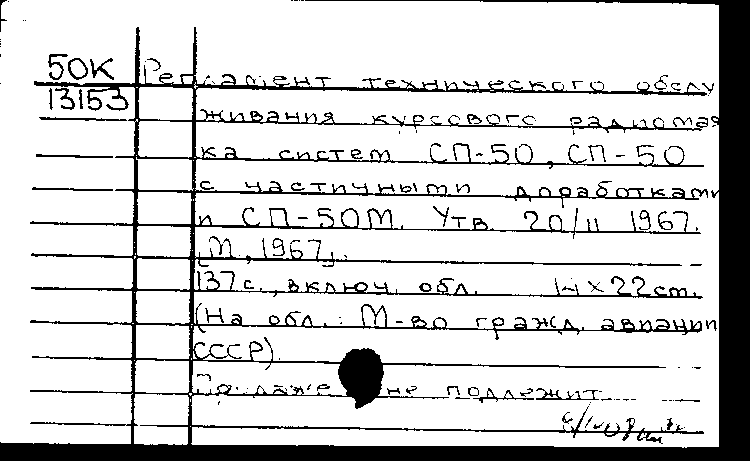 50К Регламент технического обслу
13153
живания курсового радиомая
ка систем СП-50, СП-50
с частичными доработками
и СП-50М. Утв. 20/II 1967.
[М., 1967].
137 с., включ. обл. 14×22 см.
(На обл.: М-во гражд. авиации
СССР).
Продаже не подлежит